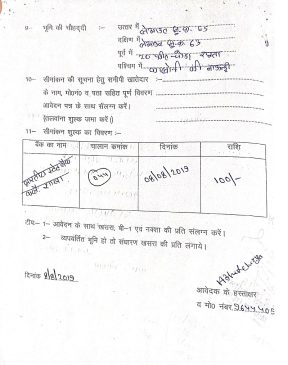 9- भूमि की चौहद्दी :- उत्तर में लेआउट भू.क्र. 65
दक्षिण में लेआउट भू.क्र. 63
पूर्व में 20 फीट चौड़ा रास्ता
पश्चिम में कालोनी की बाउन्ड्री
10- सीमांकन की सूचना हेतु समीपी खातेदार :-
के नाम, मो0नं0 व पता सहित पूर्ण विवरण
आवेदन पत्र के साथ संलग्न करें।
(तलवाना शुल्क जमा करें।)
11- सीमांकन शुल्क का विवरण :-
बैंक का नाम चालान क्रमांक दिनांक राशि
भारतीय स्टेट बैंक शाखा 044 08/08/2019 100/-
टीप- 1- आवेदन के साथ खसरा, बी-1 एवं नक्शा की प्रति संलग्न करें।
2- व्यपवर्तित भूमि हो तो संधारण खसरा की प्रति लगाये।
दिनांक 8/8/2019
आवेदक के हस्ताक्षर
व मो0 नंबर 9644405